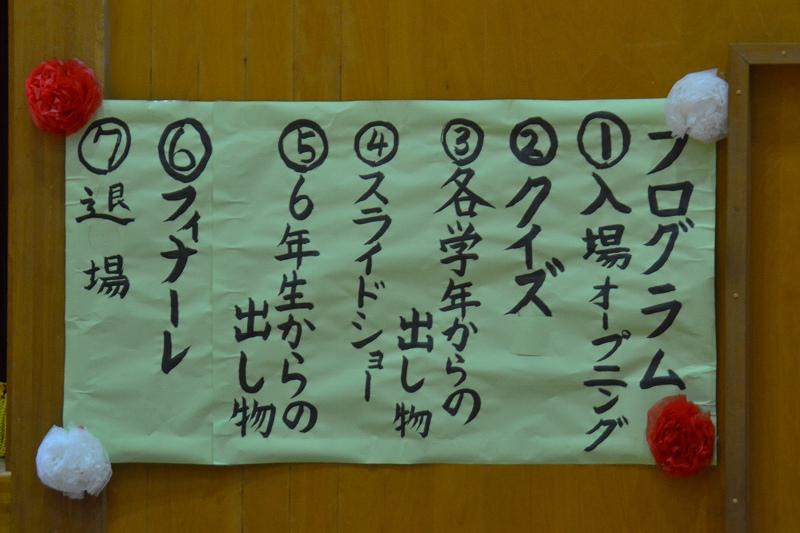 プログラム
①入場 オープニング
②クイズ
③各学年からの
出し物
④スライドショー
⑤6年生からの
出し物
⑥フィナーレ
⑦退場